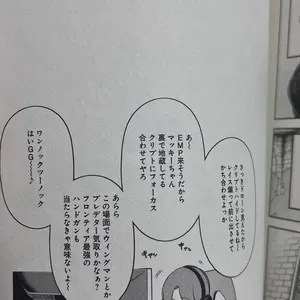 さっきドローン見えたから
クリプトハイドしてるね〜
レイス釣って前に出させて
かち合わせよっか
あ〜
EMP来そうだから
マッキーちゃん
裏で地蔵してる
クリプトにフォーカス
合わせてヤろ
あらら
この場面でウィングマンとか
プレデター気取りかなぁ?
フロンティア最強の
ハンドガンも
当たらなきゃ意味ないよ〜
ワンノックツーノック
はいGG〜〜〜♪